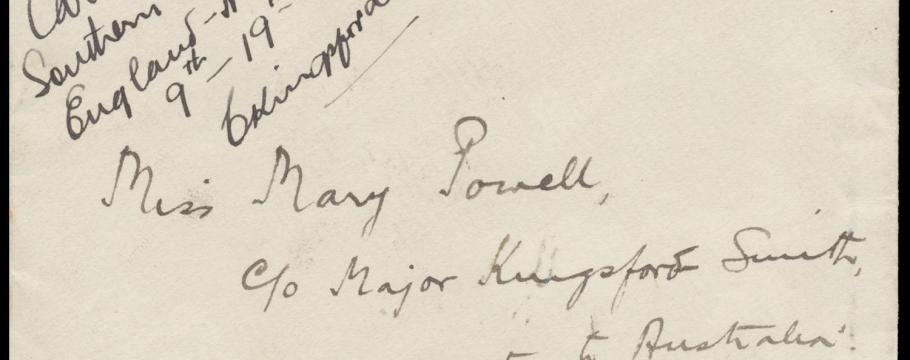 Southern
England - A
9th - 19-
CKingsford
Miss Mary Powell,
c/o Major Kingsford Smith,
to Australia.